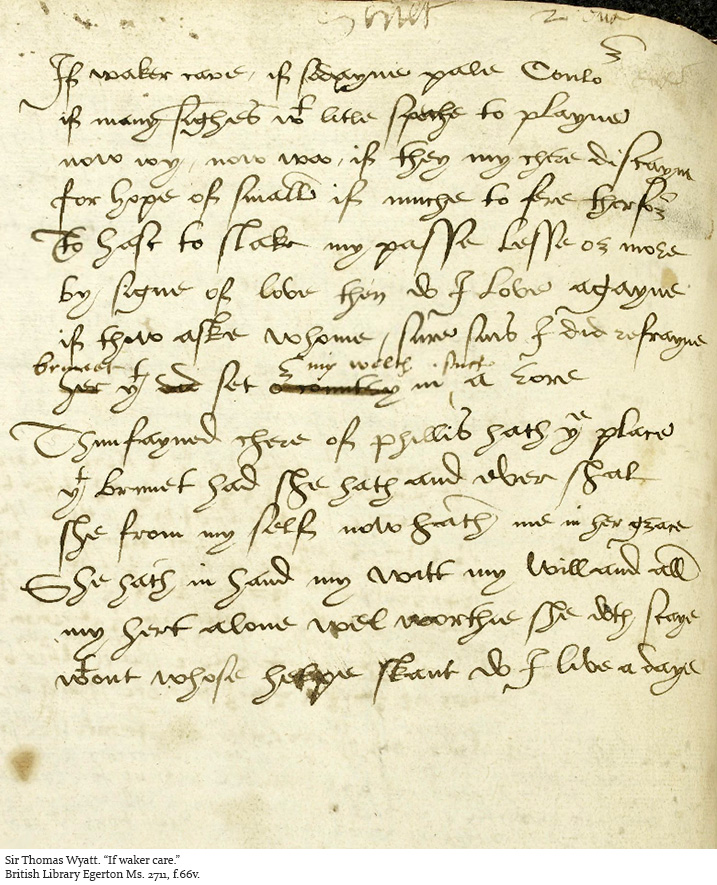 If waker care, if sodayne pale Coulor
if many sighes wt litle speche to playne
now ioy, now woo, if they my chere distayne
for hope of small if muche to fere therfor
To hast to slake my passe lesse or more
by signe of love then do I love agayne
if thow aske whome, sure sins I did refrayne
brunet my welth such
her yt did set in a rore
Thunfayned chere of phillis hath ye place
yt brunet had she hath and ever shal
she from my self now hath me in her grace
She hath in hand my witt my will and all
my hert alone wel worthie she doth staye
wtout whose helpe skant do I live a daye
Sir Thomas Wyatt. “If waker care.”
British Library Egerton Ms. 2711, f.66v.